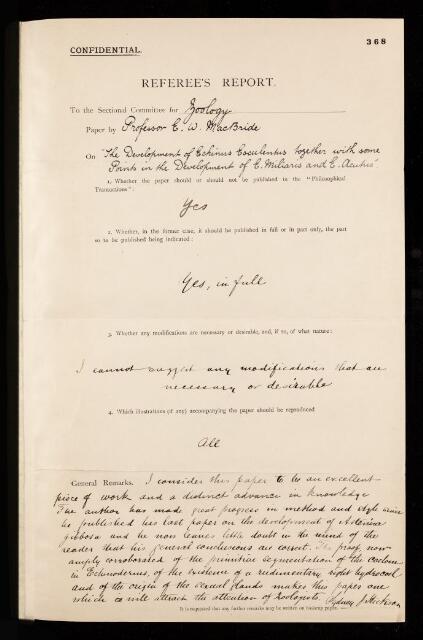 368
CONFIDENTIAL.
REFEREE'S REPORT.
To the Sectional Committee for Zoology
Paper by Professor E. W. MacBride
On "The Development of Echinus Esculentus together with some
Points in the Development of E. Miliaris and E. Acutus"
1. Whether the paper should or should not be published in the "Philosophical
Transactions":
Yes
2. Whether, in the former case, it should be published in full or in part only, the part
so to be published being indicated:
Yes, in full
3. Whether any modifications are necessary or desirable, and, if so, of what nature:
I cannot suggest any modifications that are
necessary or desirable
4. Which illustrations (if any) accompanying the paper should be reproduced
All
General Remarks. I consider this paper to be an excellent
piece of work and a distinct advance in knowledge
The author has made great progress in method and style since
he published his last paper on the development of Asterina
gibbosa and he now leaves little doubt in the mind of the
reader that his general conclusions are correct. The proof, now
amply corroborated of the primitive segmentation of the coelom
in Echinoderms, of the existence of a rudimentary right hydrocoel
and of the origin of the sexual glands makes this paper one
which will attract the attention of zoologists. Sydney J. Hickson
It is requested that any further remarks may be written on